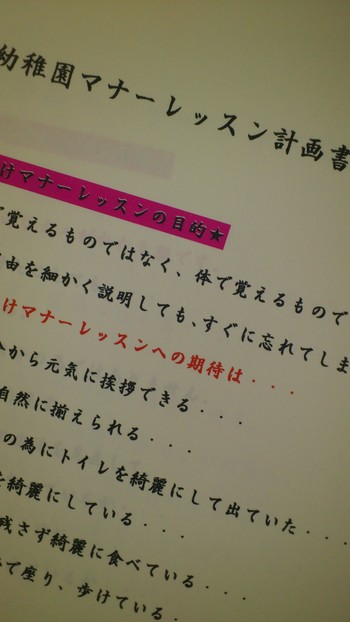 幼稚園マナーレッスン計画書
けマナーレッスンの目的★
で覚えるものではなく、体で覚えるもので
由を細かく説明しても、すぐに忘れてしま
けマナーレッスンへの期待は・・・
から元気に挨拶できる・・・
自然に揃えられる・・・
の為にトイレを綺麗にして出ていた・・・
を綺麗にしている・・・
残さず綺麗に食べている・・・
で座り、歩けている・